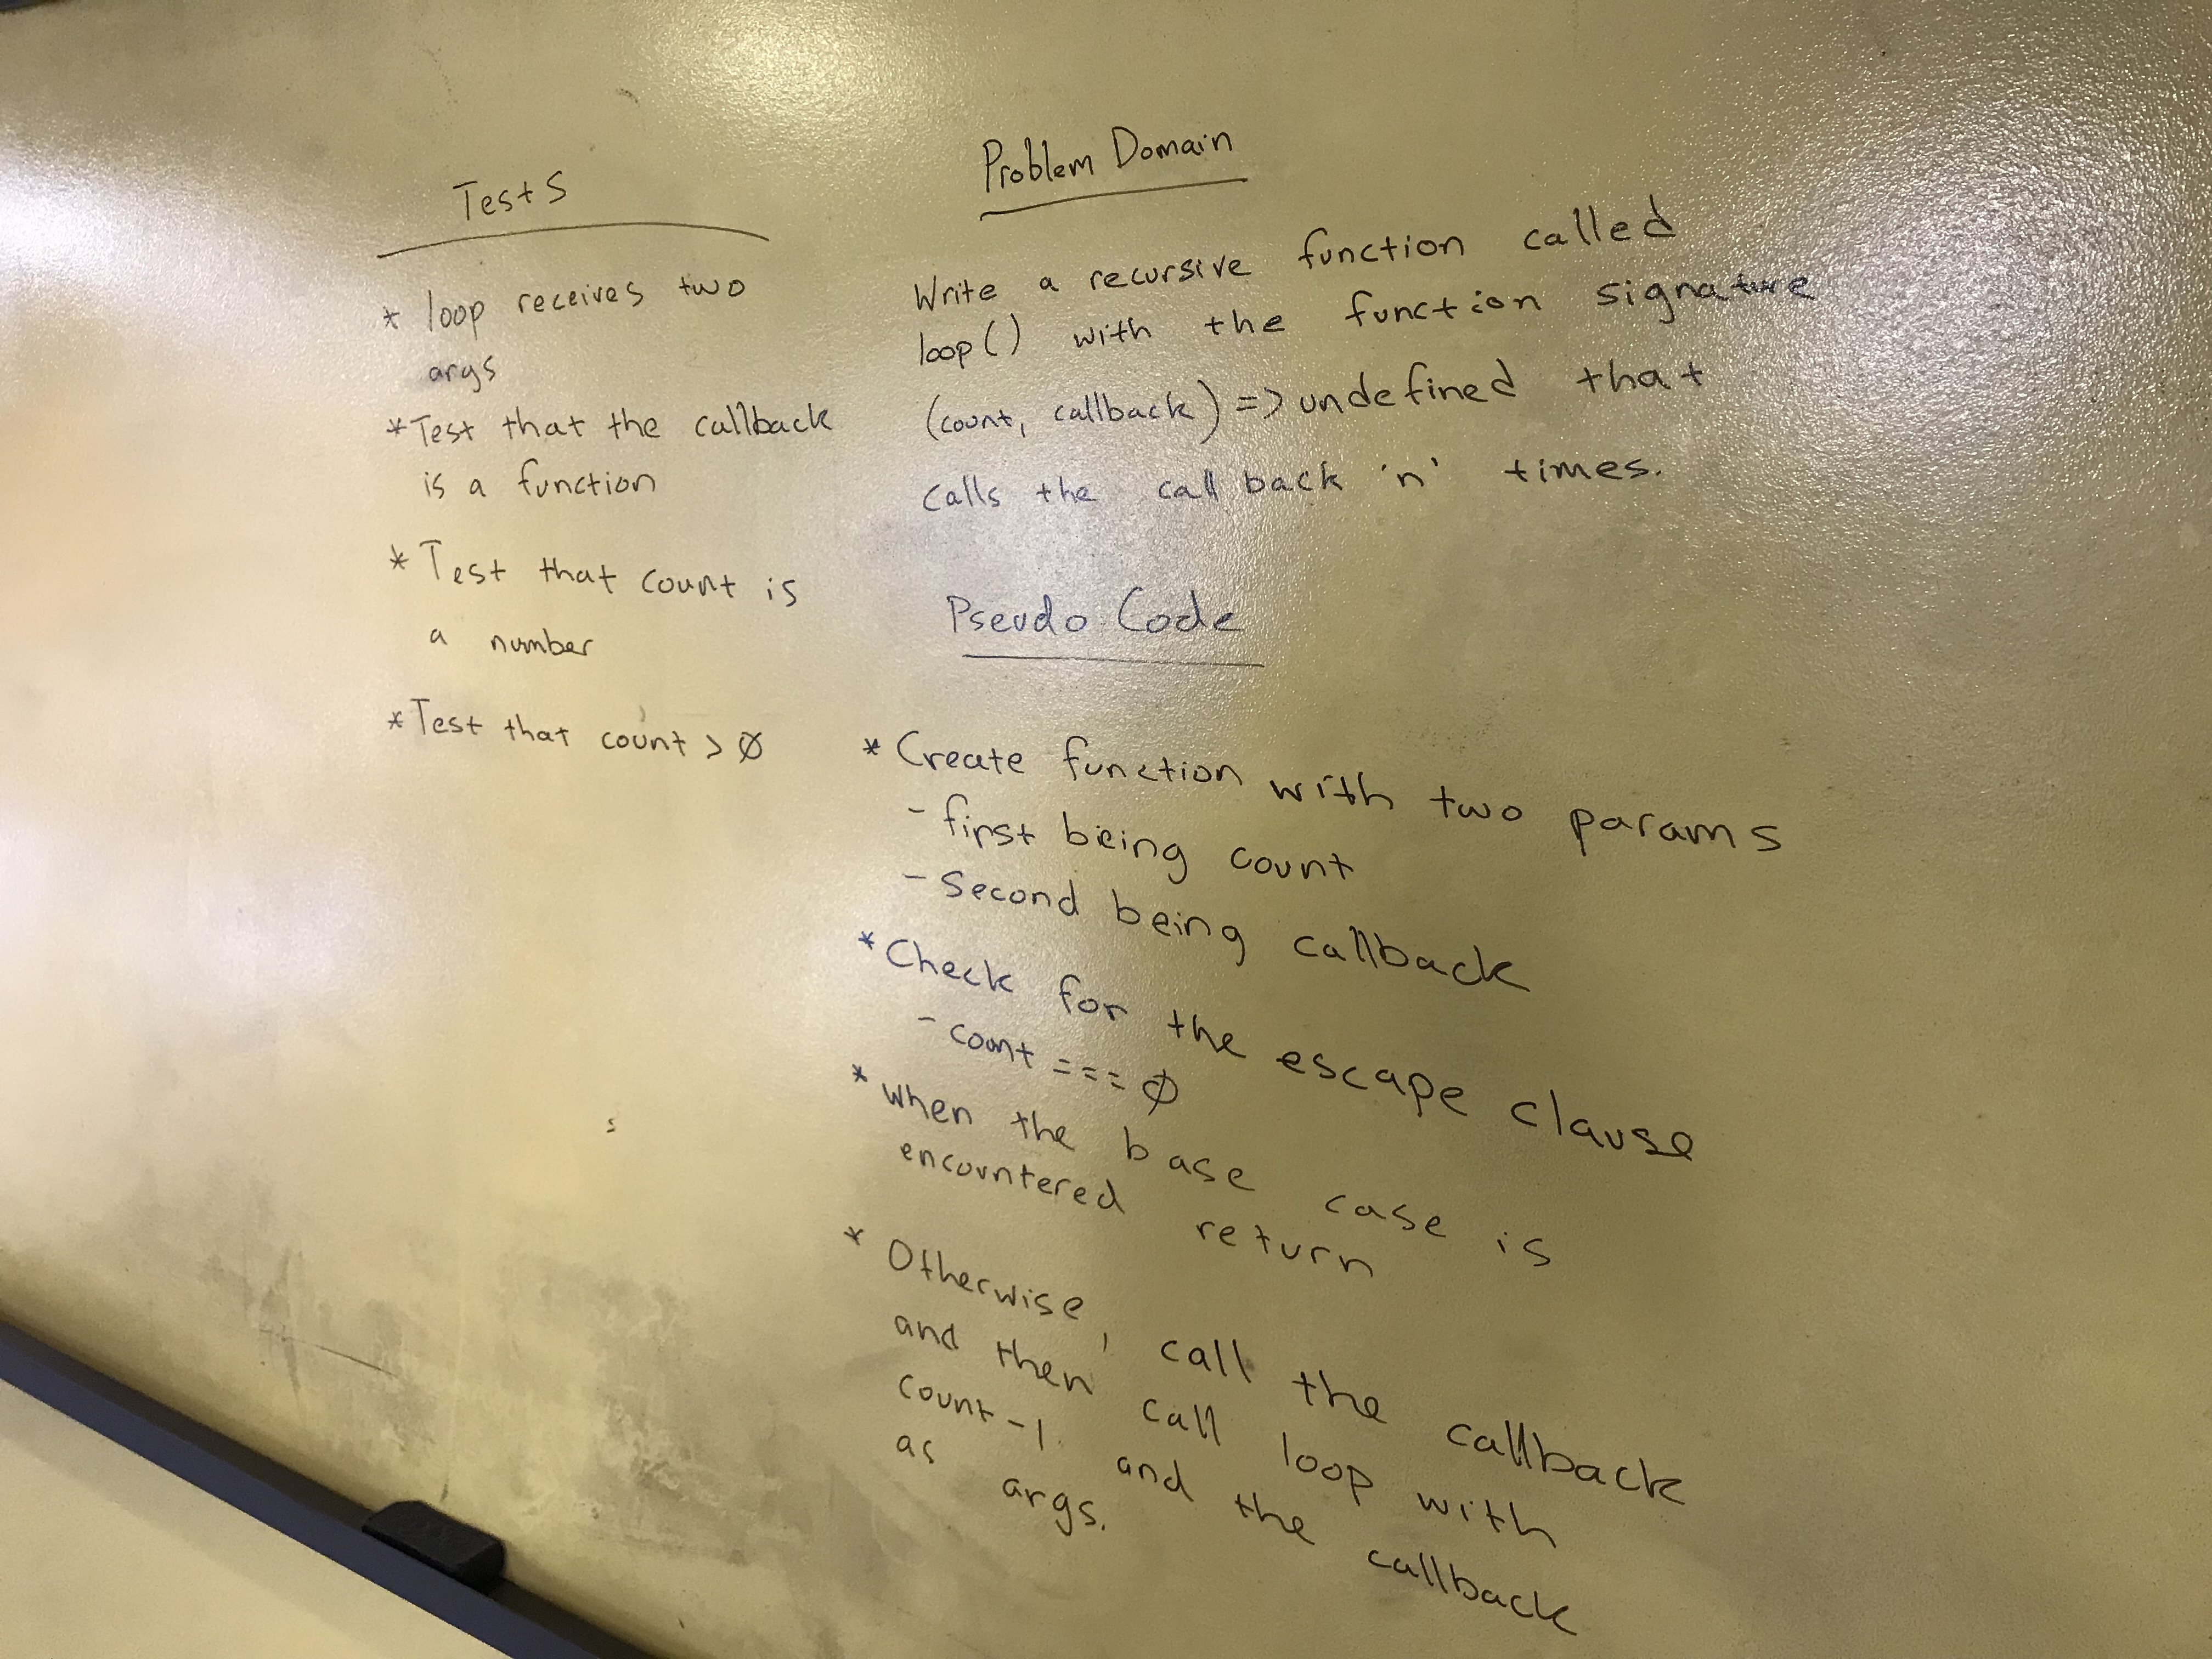 Tests
* loop receives two
args
* Test that the callback
is a function
* Test that count is
a number
* Test that count > Ø
Problem Domain
Write a recursive function called
loop() with the function signature
(count, callback) => undefined that
calls the call back 'n' times.
Pseudo Code
* Create function with two params
- first being count
- Second being callback
* Check for the escape clause
- count === Ø
* when the base case is
encountered return
* Otherwise, call the callback
and then call loop with
count -1 and the callback
as args.